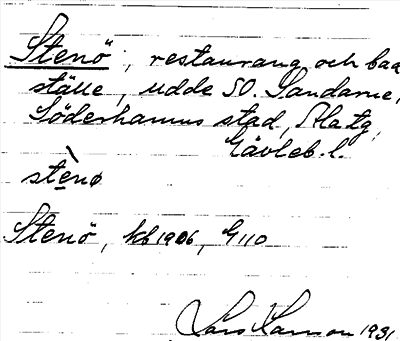 Stenö, restaurang och bad
ställe, udde SO. Sandarne,
Söderhamns stad,
Gävleb. l.
stènø
Stenö, kb 1906, G110
Lars Larsson 1931